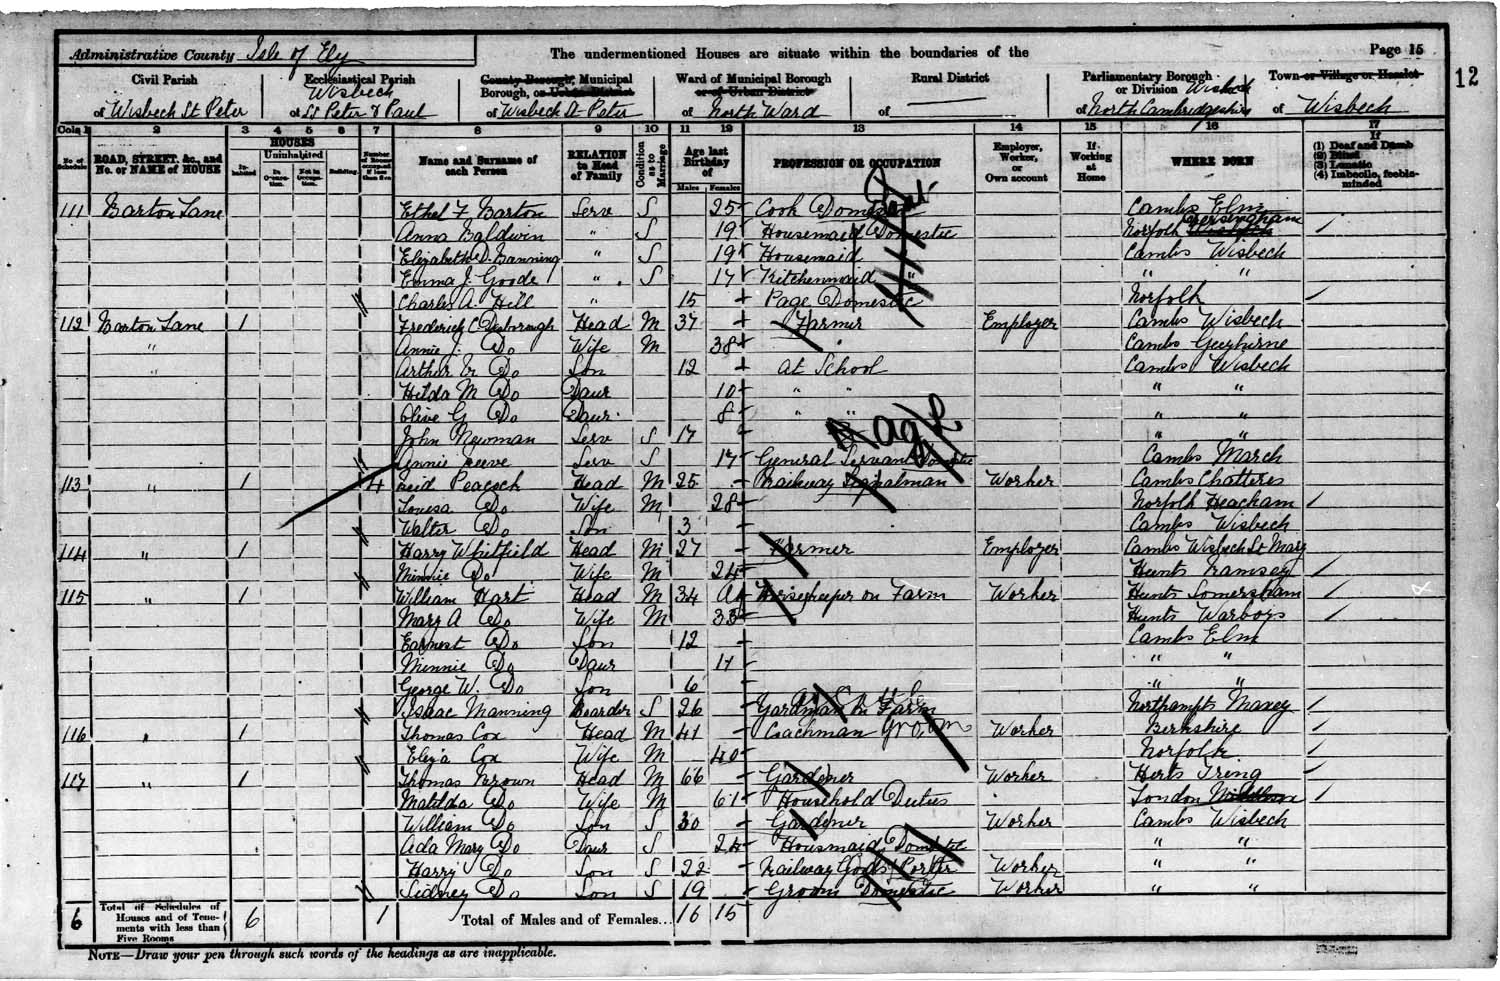 Administrative County Isle of Ely The undermentioned Houses are situate within the boundaries of the Page 15
12
Civil Parish Ecclesiastical Parish County Borough, Municipal Borough, or Urban District Ward of Municipal Borough or of Urban District Rural District Parliamentary Borough or Division Wisbech Town or Village or Hamlet
of Wisbech St Peter of Wisbech St Peter & Paul of Wisbech St Peter of North Ward of of North Cambridgeshire of Wisbech
Cols 1 2 3 4 5 6 7 8 9 10 11 12 13 14 15 16 17
No. of Schedule ROAD, STREET, &c., and No. or NAME of HOUSE HOUSES Inhabited Uninhabited In Occupation. Not in Occupation. Building. Number of Rooms occupied if less than five Name and Surname of each Person RELATION to Head of Family Condition as to Marriage Age last Birthday of Males Females PROFESSION OR OCCUPATION Employer, Worker, or Own account If Working at Home WHERE BORN If (1) Deaf and Dumb (2) Blind (3) Lunatic (4) Imbecile, feeble-minded
111 Barton Lane Ethel F Barton Serv S 25 Cook Domestic Cambs Elm
Anna Baldwin " S 19 Housemaid Domestic Norfolk
Elizabeth D. Banning " S 19 Housemaid Cambs Wisbech
Emma J. Goode " S 17 Kitchenmaid " " "
Charles A. Hill " 15 Page Domestic Norfolk
112 Barton Lane 1 Frederick C Desborough Head M 37 Farmer Employer Cambs Wisbech
" Annie J. Do Wife M 38 Cambs Guyhirne
" Arthur E Do Son 12 At School Cambs Wisbech
Hilda M Do Daur 10 " " " "
Olive G Do Daur 8 " " " "
John Newman Serv S 17 " "
Annie Reeve Serv S 17 General Servant Domestic Cambs March
113 " 1 4 Reid Peacock Head M 25 Railway Signalman Worker Cambs Chatteris
Louesa Do Wife M 28 Norfolk Heacham
Walter Do Son 3 Cambs Wisbech
114 " 1 Harry Whitfield Head M 27 Farmer Employer Cambs Wisbech St Mary
Minnie Do Wife M 24 Hunts Ramsey
115 " 1 William Hart Head M 34 Horsekeeper on Farm Worker Hunts Somersham
Mary A Do Wife M 33 Hunts Warboys
Earnest Do Son 12 Cambs Elm
Minnie Do Daur 11 " "
George W. Do Son 6 " "
Isaac Manning Boarder S 26 on Farm Northampts Maxey
116 " 1 Thomas Cox Head M 41 Coachman Groom Worker Berkshire
Eliza Cox Wife M 40 Norfolk
117 " 1 Thomas Brown Head M 66 Gardener Worker Herts Tring
Matilda Do Wife M 61 Household Duties London
William Do Son S 30 Gardener Worker Cambs Wisbech
Ada Mary Do Daur S 24 Housmaid Domestic " "
Harry Do Son S 22 Railway Goods Porter Worker " "
Sidney Do Son S 19 Groom Domestic Worker " "
6 Total of Schedules of Houses and of Tenements with less than Five Rooms 6 1 Total of Males and of Females... 16 15
NOTE—Draw your pen through such words of the headings as are inapplicable.